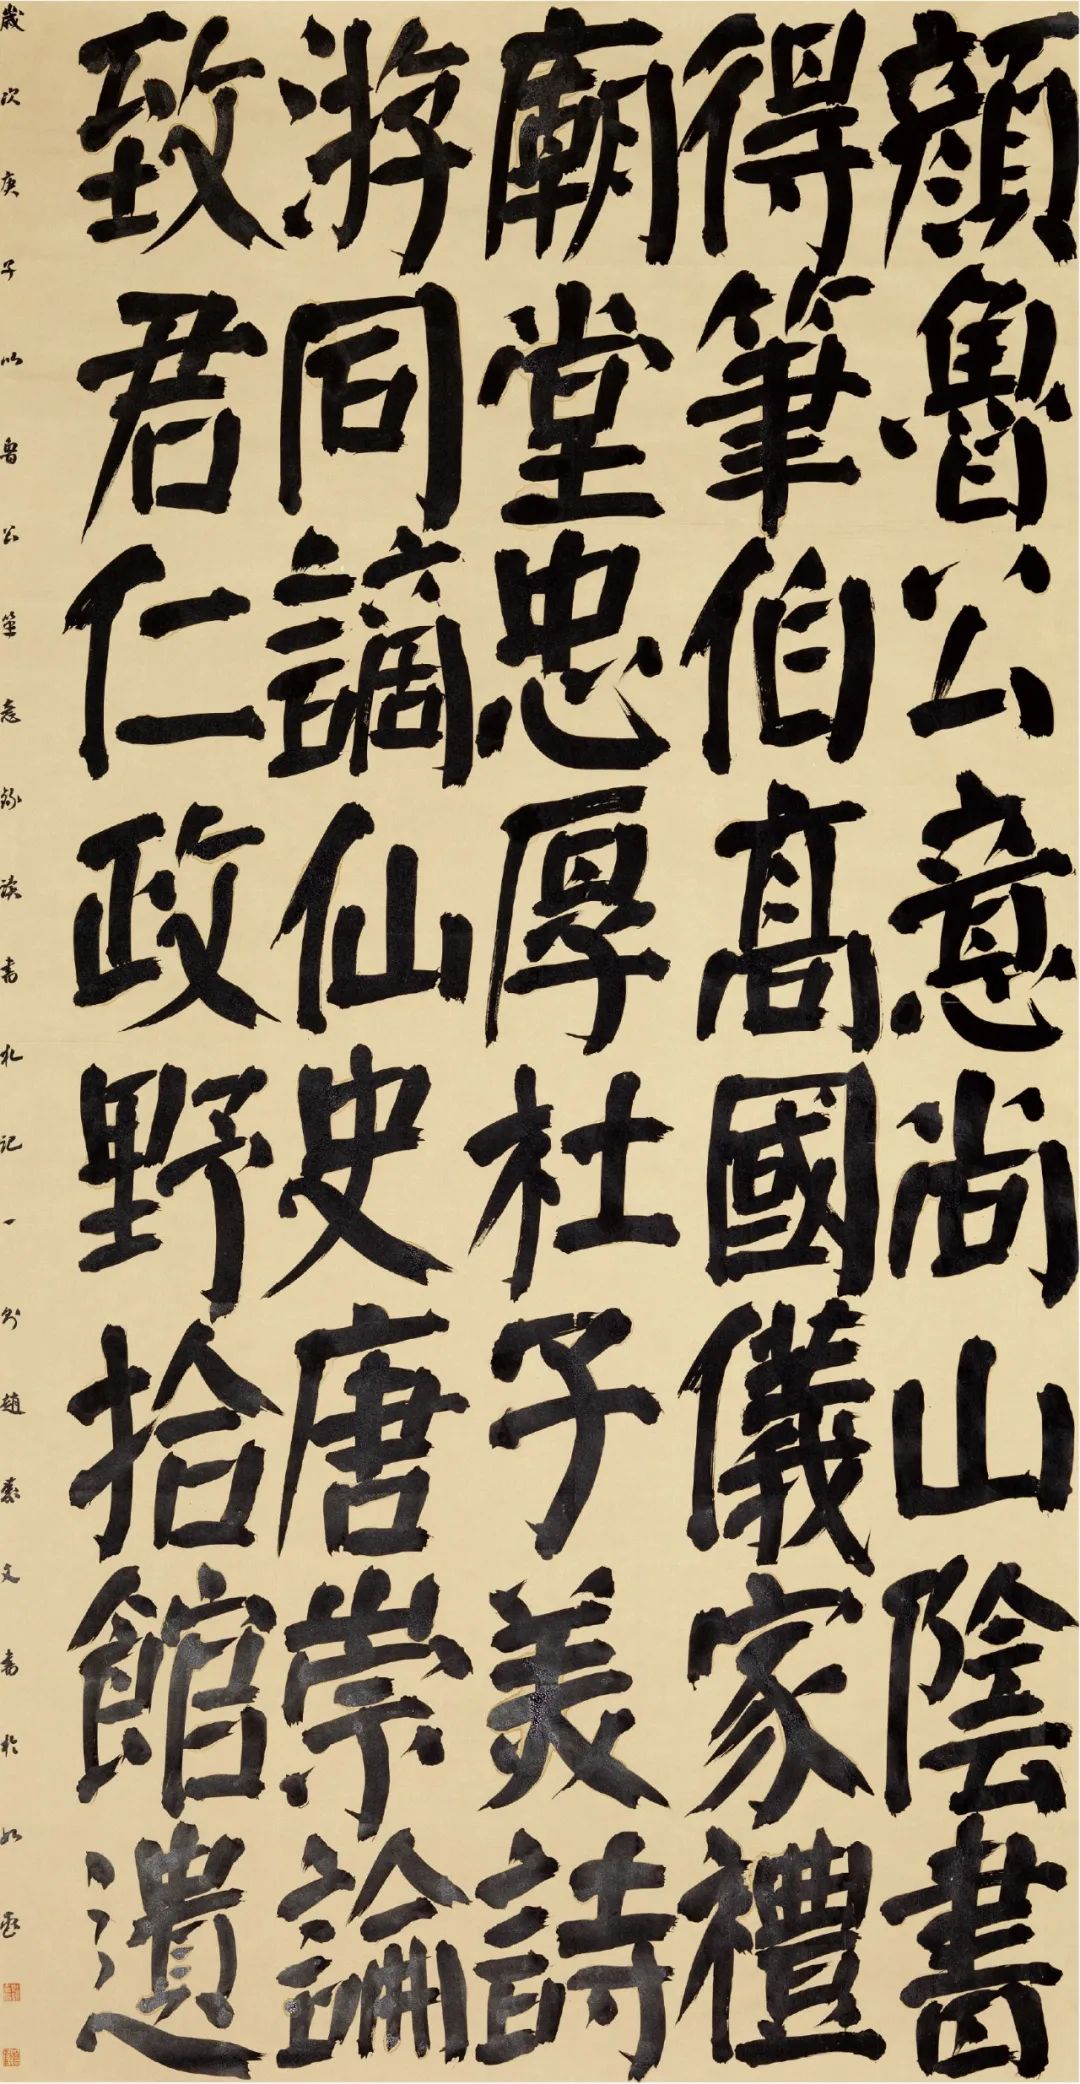 顏魯公意尚山陰書
得筆伯高國儀家禮
廟堂忠厚杜子美詩
游同謫仙史唐崇論
致君仁政野拾館遺
歲次庚子以魯公筆意錄談書札記一則趙文書於